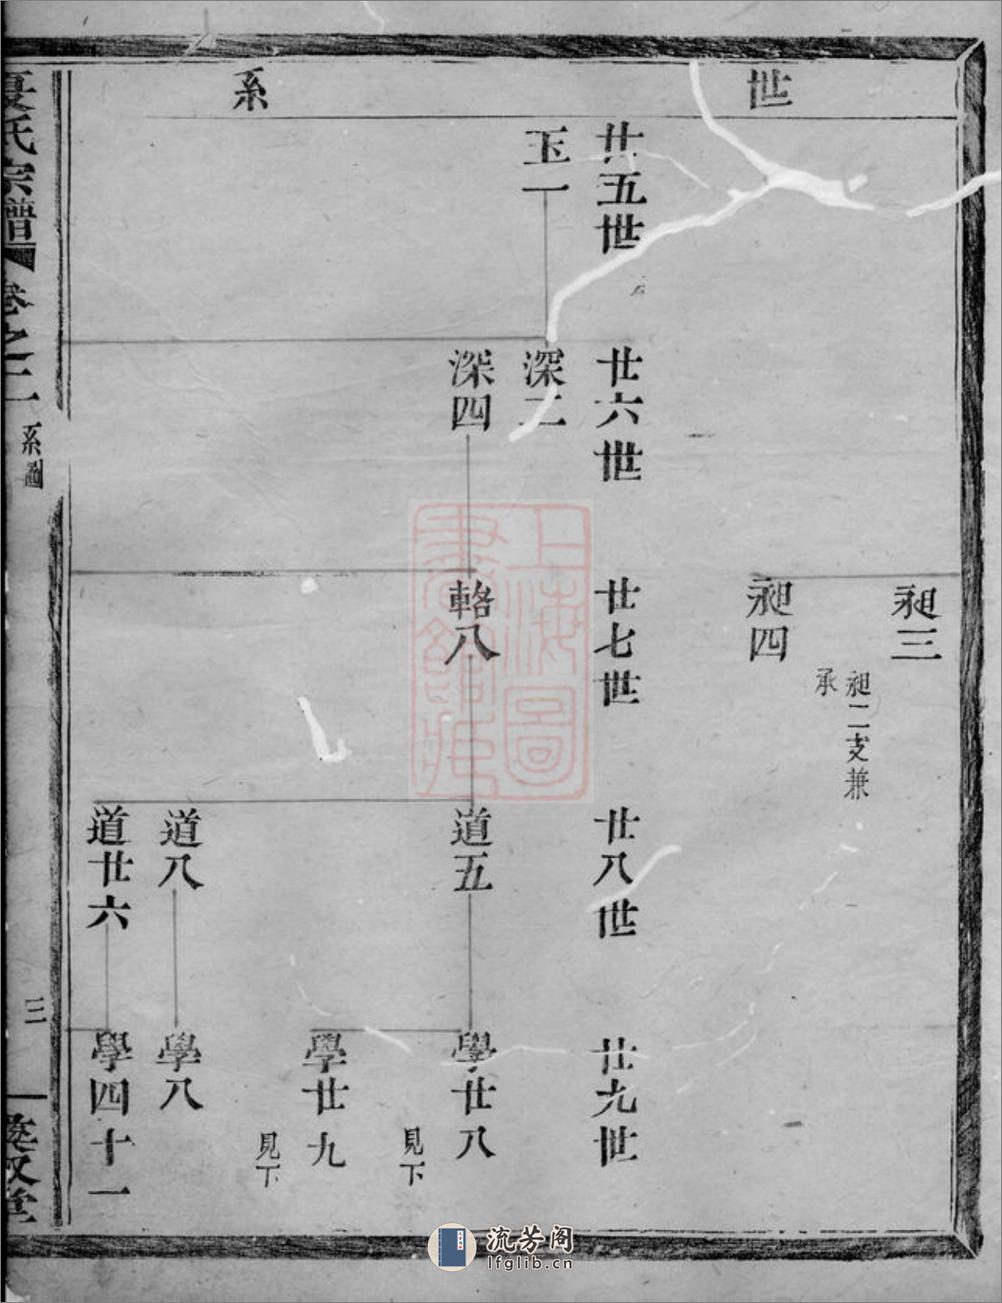 世系
昶三
昶二支兼
承
昶四
廿五世
廿六世
廿七世
廿八世
廿九世
玉一
深二
深四
輅八
道五
學廿八
見下
學廿九
見下
道八
學八
道廿六
學四十一
夏氏宗譜
卷之二
系圖
三
敘堂
上海圖
書館藏
流芳阁
lfglib.cn